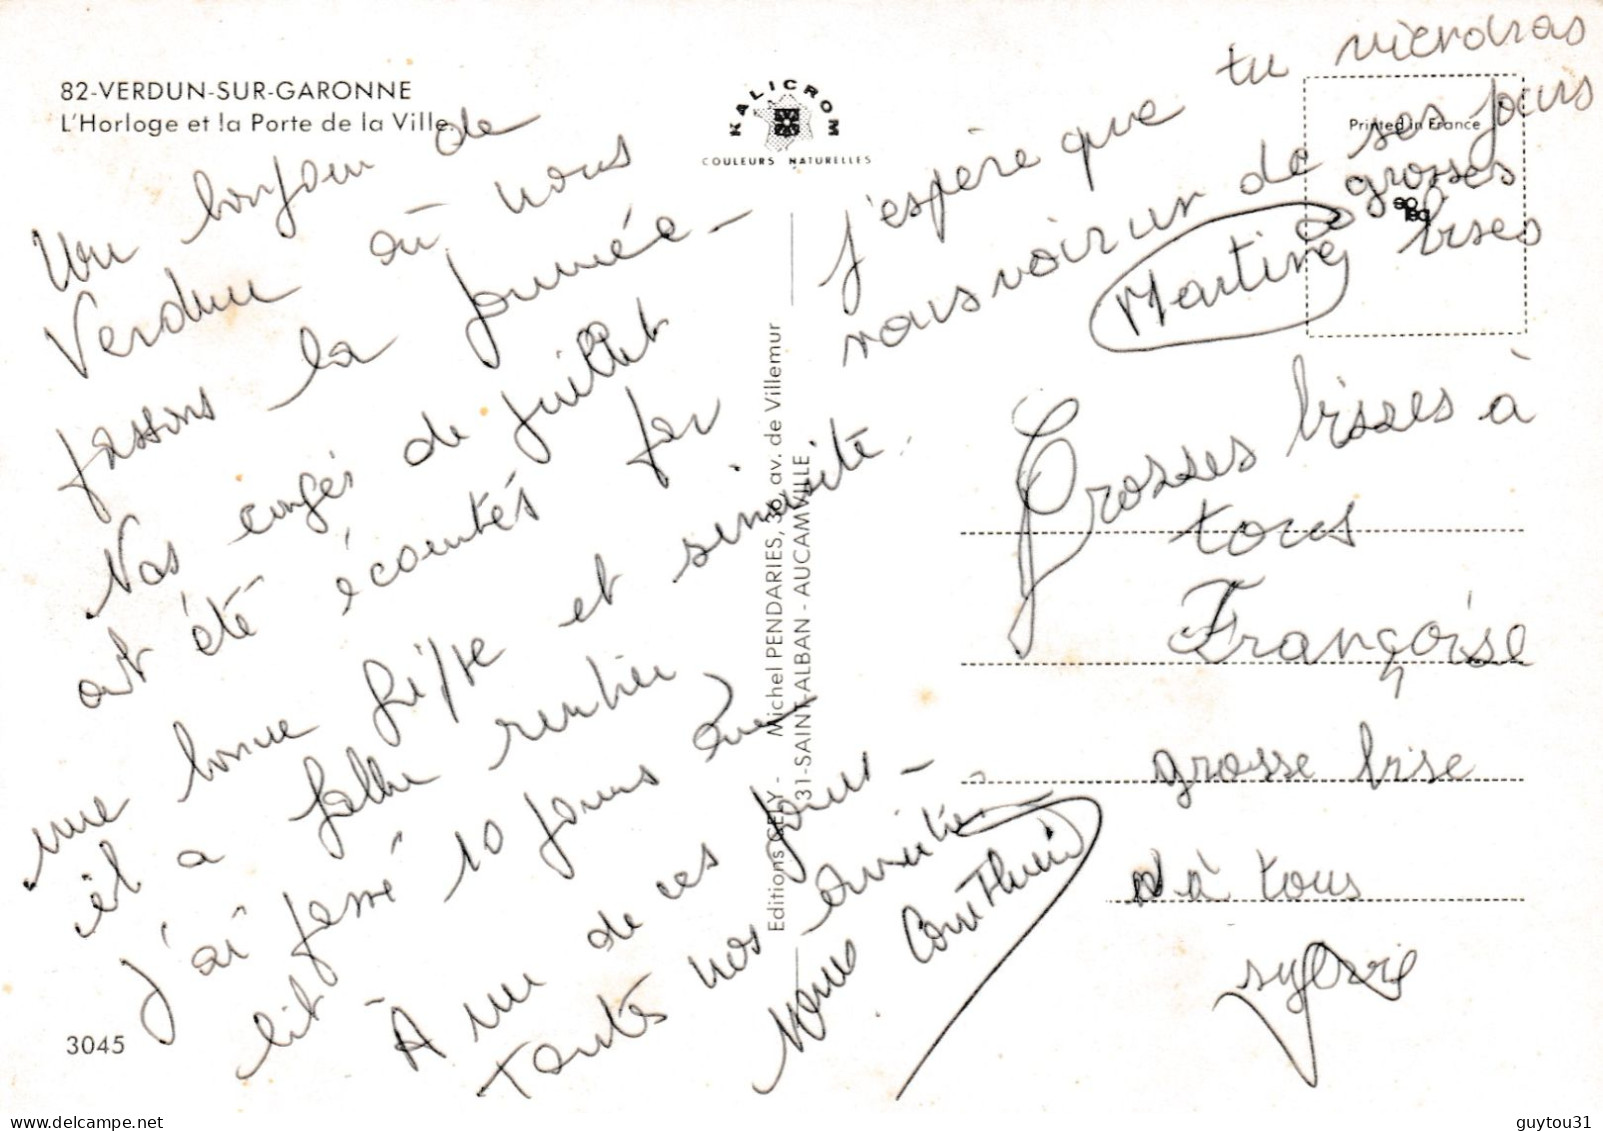 82-VERDUN-SUR-GARONNE
L'Horloge et la Porte de la Ville
KALICROM
COULEURS NATURELLES
Printed in France
Un bonjour de
Verdun où nous
passons la journée -
Nos congés de juillet
ont été écourtés par
une bonne grippe et sinusite.
il a fallu rentrer
J'ai passé 10 jours au
lit
À un de ces jours -
Toutes nos amitiés -
Nous
3045
Editions CELY - Michel PENDARIES, 36, av. de Villemur
31-SAINT-ALBAN - AUCAMVILLE
J'espère que tu viendras
nous voir un de ses jours
grosses
bises
Martine
Grosses bisses à
tous
Françoise
grosse bise
à tous
sylvie
guytou31
www.delcampe.net